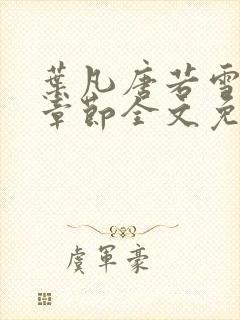 葉凡唐若雪
章節全文免
虞軍豪